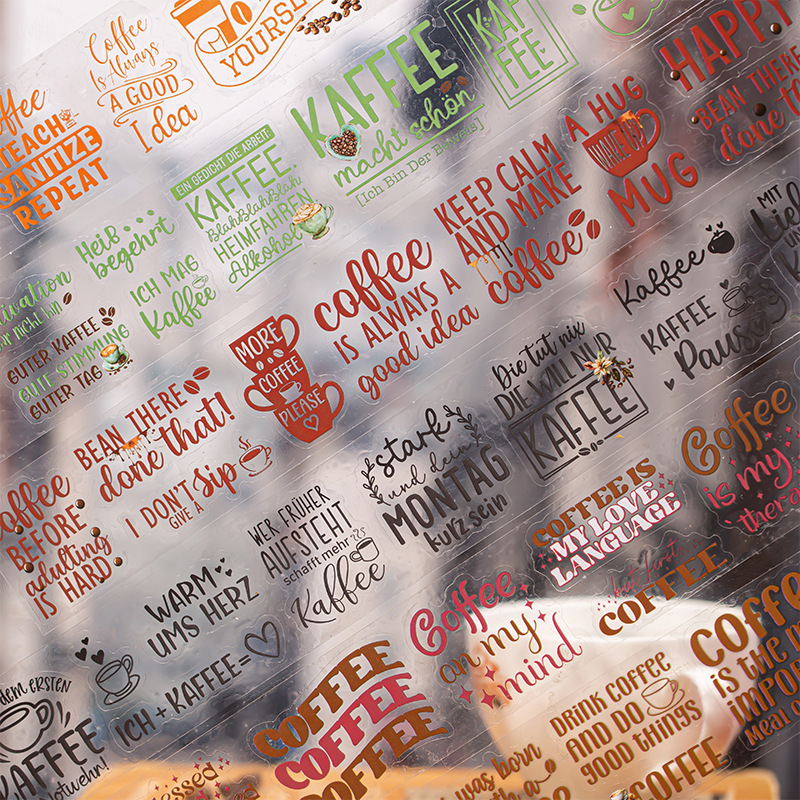 Coffee
TEACH
SANITIZE
REPEAT
Coffee
Is Always
A GOOD
Idea
YOURSELF
KAFFEE
macht schön
[Ich Bin Der Beweis]
KAF
FEE
HAPPY
BEAN THERE
done that
EIN GEDICHT DIE ARBEIT:
KAFFEE.
BlahBlahBlah
HEIMFAHREN
Alkohol
Heiß
begehrt
ICH MAG
Kaffee
nicht hin
GUTER KAFFEE
GUTE STIMMUNG
GUTER TAG
KEEP CALM
AND MAKE
coffee
A HUG
WAKE UP
MUG
coffee
IS ALWAYS A
good idea
MORE
COFFEE
PLEASE
BEAN THERE
done that!
I DON'T
GIVE A
Sip
coffee
BEFORE
adulting
IS HARD
MIT
Liebe
Kaffee
KAFFEE
Pause
Die tut nix
DIE WILL NUR
KAFFEE
stark
und dein
MONTAG
kurz sein
WER FRÜHER
AUFSTEHT
schafft mehr
Kaffee
WARM
UMS HERZ
ICH + KAFFEE =
dem ERSTEN
KAFFEE
Notwehr!
Coffee
is my
therapy
COFFEE IS
MY LOVE
LANGUAGE
but first
COFFEE
Coffee
on my
mind
COFFEE
COFFEE
COFFEE
COFFEE
is the
meal
DRINK COFFEE
AND DO
GOOD THINGS
was born
with a
COFFEE